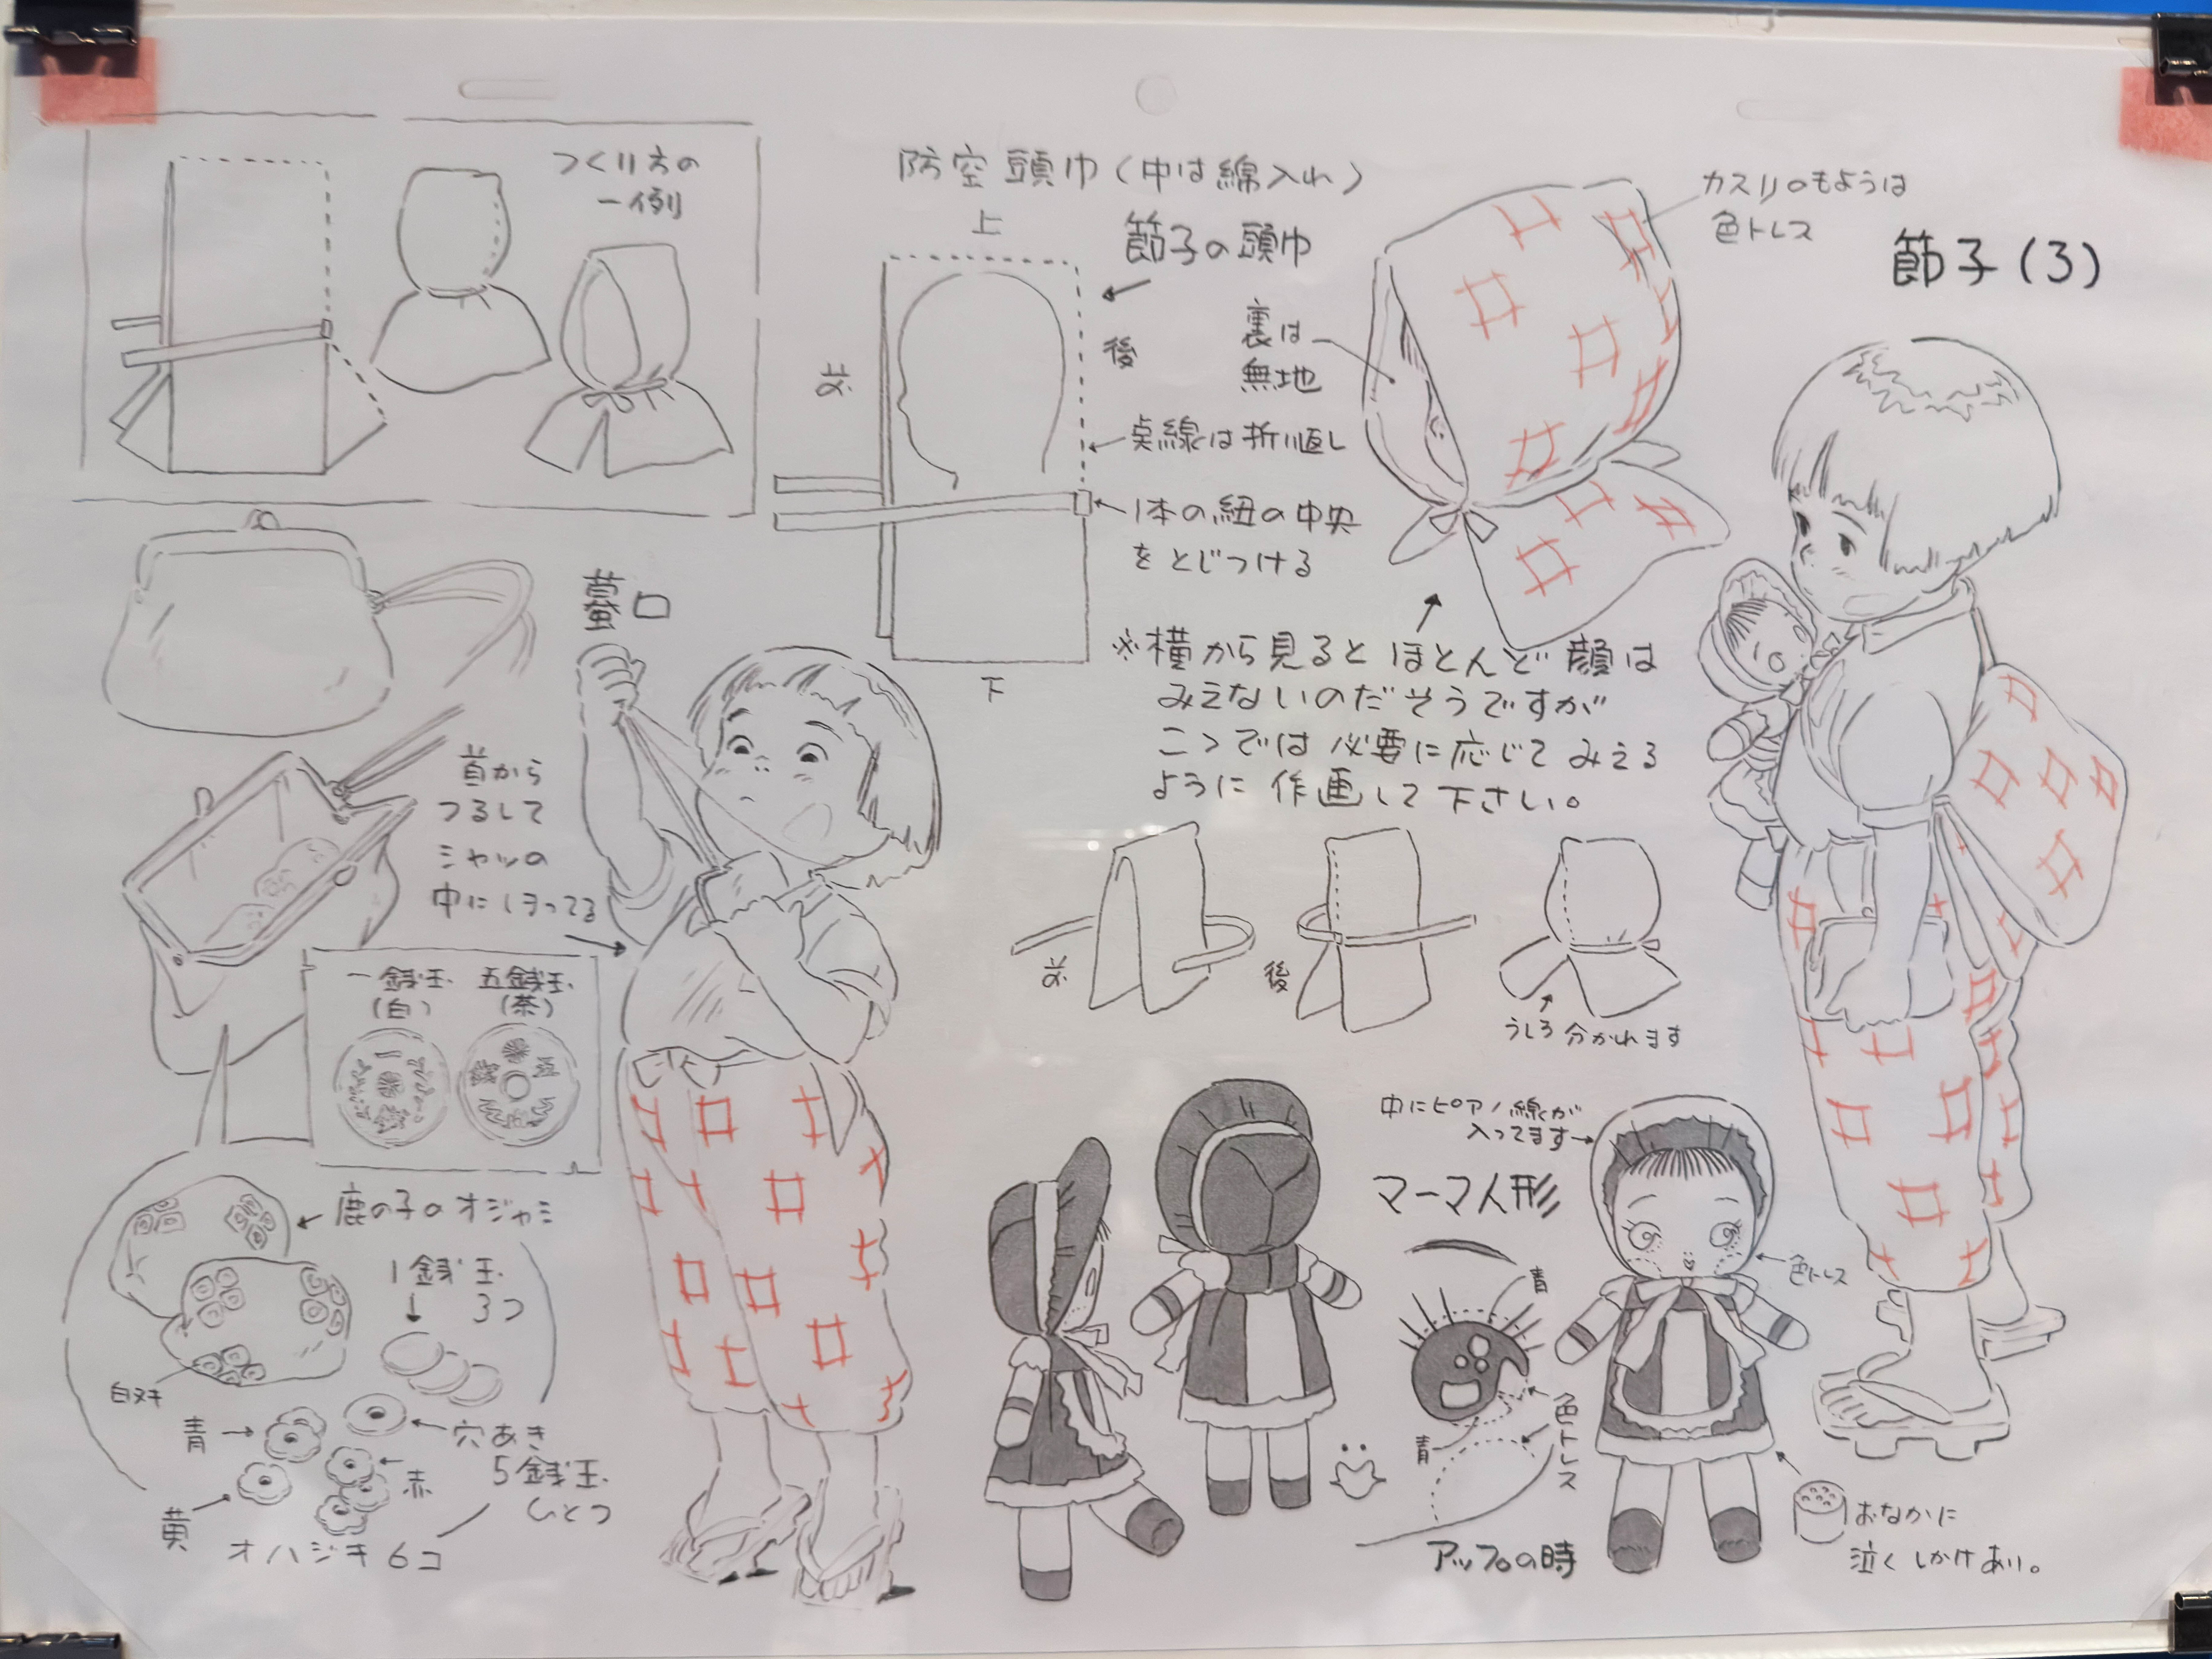 つくり方の
一例
防空頭巾(中は綿入れ)
上
節子の頭巾
前
後
点線は折り返し
1本の紐の中央
をとじつける
下
裏は
無地
カスリのもようは
色トレス
節子(3)
※横から見るとほとんど顔は
みえないのだそうですが
ここでは必要に応じてみえる
ように作画して下さい。
前
後
うしろ分かれます
蟇口
首から
つるして
シャツの
中にしまってる
一銭玉
(白)
五銭玉
(茶)
鹿の子のオジャミ
1銭玉
3つ
白ヌキ
青
黄
赤
穴あき
5銭玉
ひとつ
オハジキ6コ
中にピアノ線が
入ってます
マーマ人形
青
色トレス
青
色トレス
アップの時
おなかに
泣くしかけあり。